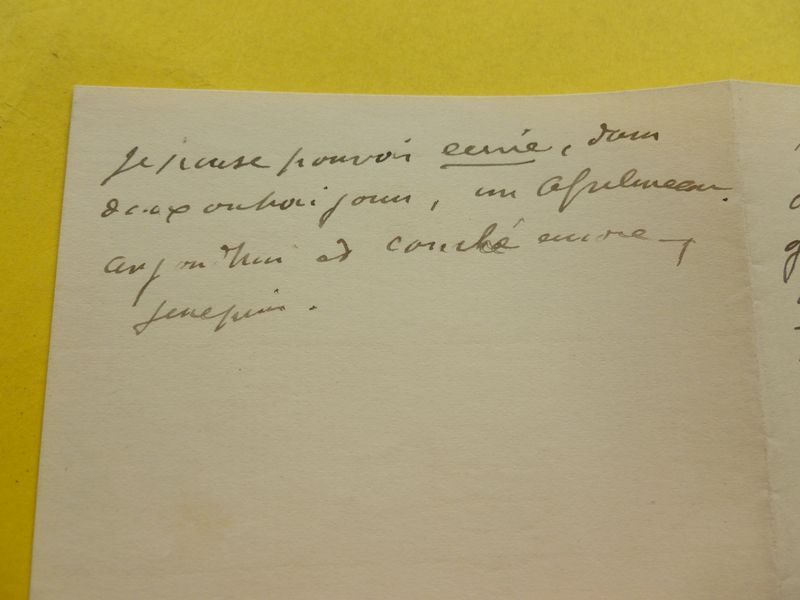 Je pense pouvoir écrire, dans
deux ou trois jours, un
aujourd'hui et couché encore,
je ne puis.